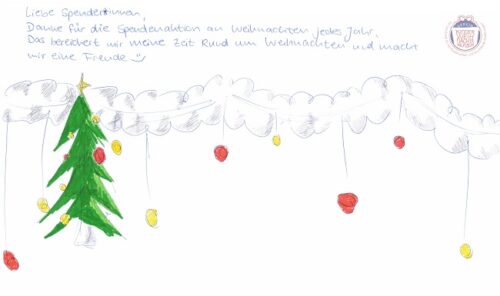 Liebe Spenderinnen,
Danke für die Spendenaktion an Weihnachten jedes Jahr.
Das bereichert mir meine Zeit Rund um Weihnachten und macht
mir eine Freude